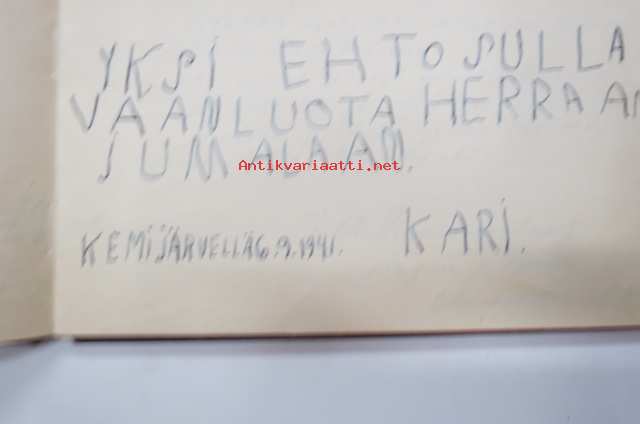 YKSI EHTO SULLA
VAANLUOTA HERRAAN
SUMALAAN.
Antikvariaatti.net
KEMIJÄRVELLÄ 6.9.1941. KARI.